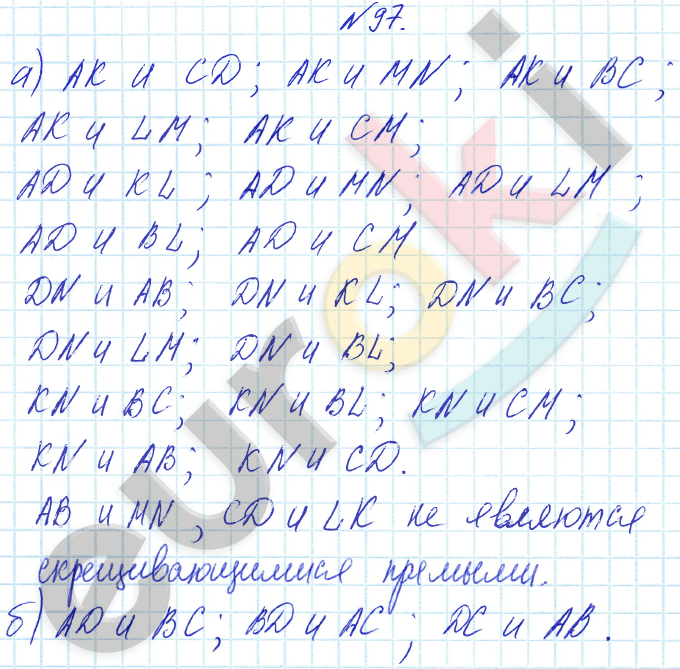 №97.
а) AK и CD; AK и MN; AK и BC;
AK и LM; AK и CM;
AD и KL; AD и MN; AD и LM;
AD и BL; AD и CM
DN и AB; DN и KL; DN и BC;
DN и LM; DN и BL;
KN и BC; KN и BL; KN и CM;
KN и AB; KN и CD.
AB и MN, CD и LK не являются
скрещивающимися прямыми.
б) AD и BC; BD и AC; DC и AB.
euroki